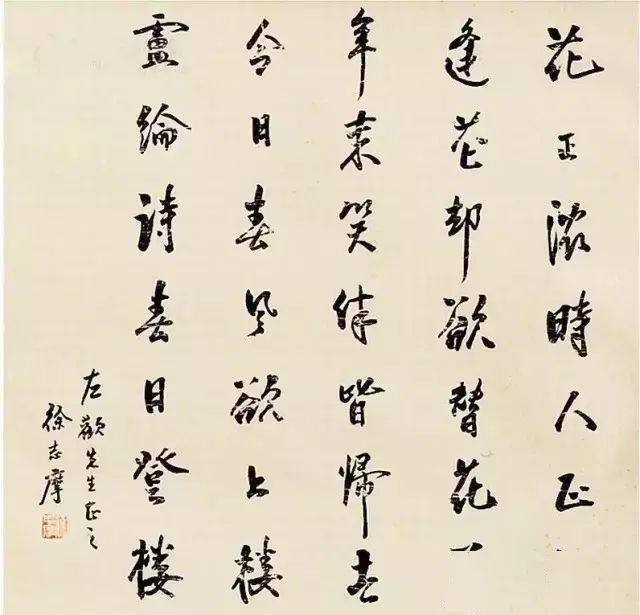 花正濃時人正
逢花却欲替花
年來笑伴皆歸去
今日春風欲上樓
盧綸詩春日登樓
左先生正之
徐志摩